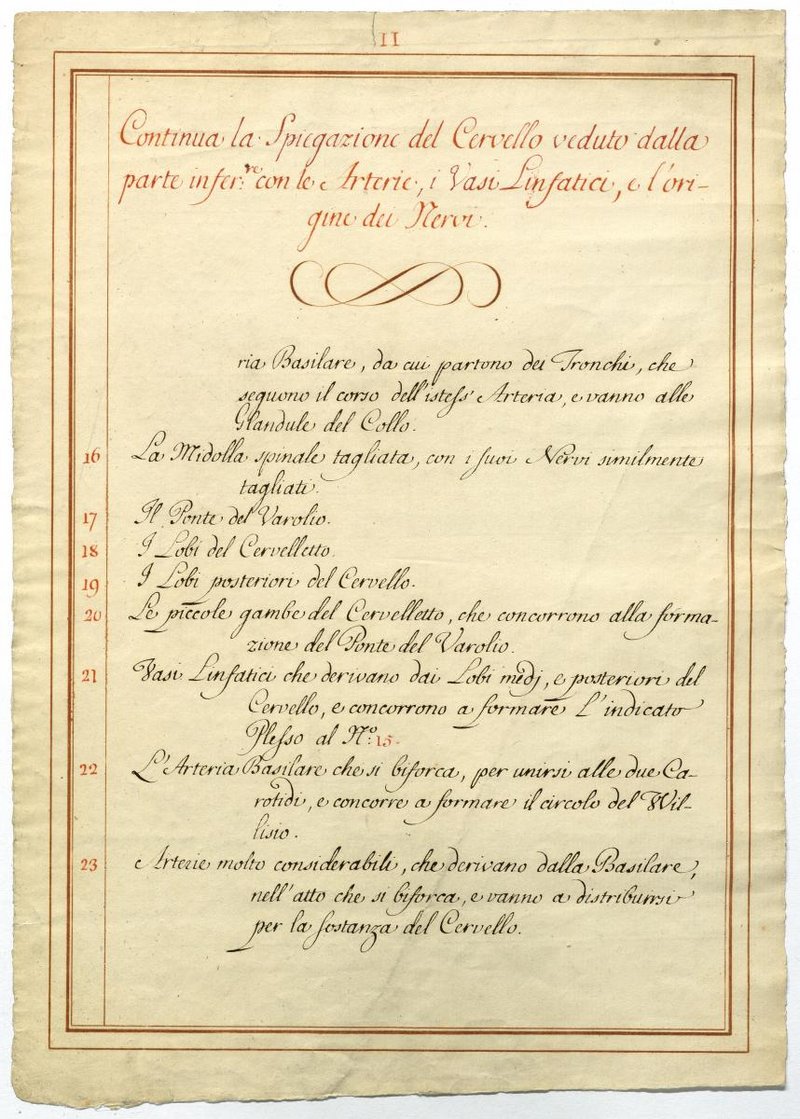 11
Continua la Spiegazione del Cervello veduto dalla
parte infer:re con le Arterie, i Vasi Linfatici, e l'ori-
gine dei Nervi.
ria Basilare, da cui partono dei Tronchi, che
seguono il corso dell'istess' Arteria, e vanno alle
Glandule del Collo.
16 La Midolla spinale tagliata, con i suoi Nervi similmente
tagliati.
17 Il Ponte del Varolio.
18 I Lobi del Cervelletto.
19 I Lobi posteriori del Cervello.
20 Le piccole gambe del Cervelletto, che concorrono alla forma-
zione del Ponte del Varolio.
21 Vasi Linfatici che derivano dai Lobi medj, e posteriori del
Cervello, e concorrono a formare L'indicato
Plesso al No: 15.
22 L'Arteria Basilare che si biforca, per unirsi alle due Ca-
rotidi, e concorre a formare il circolo del Wil-
lisio.
23 Arterie molto considerabili, che derivano dalla Basilare,
nell'atto che si biforca, e vanno a distribuirsi
per la sostanza del Cervello.